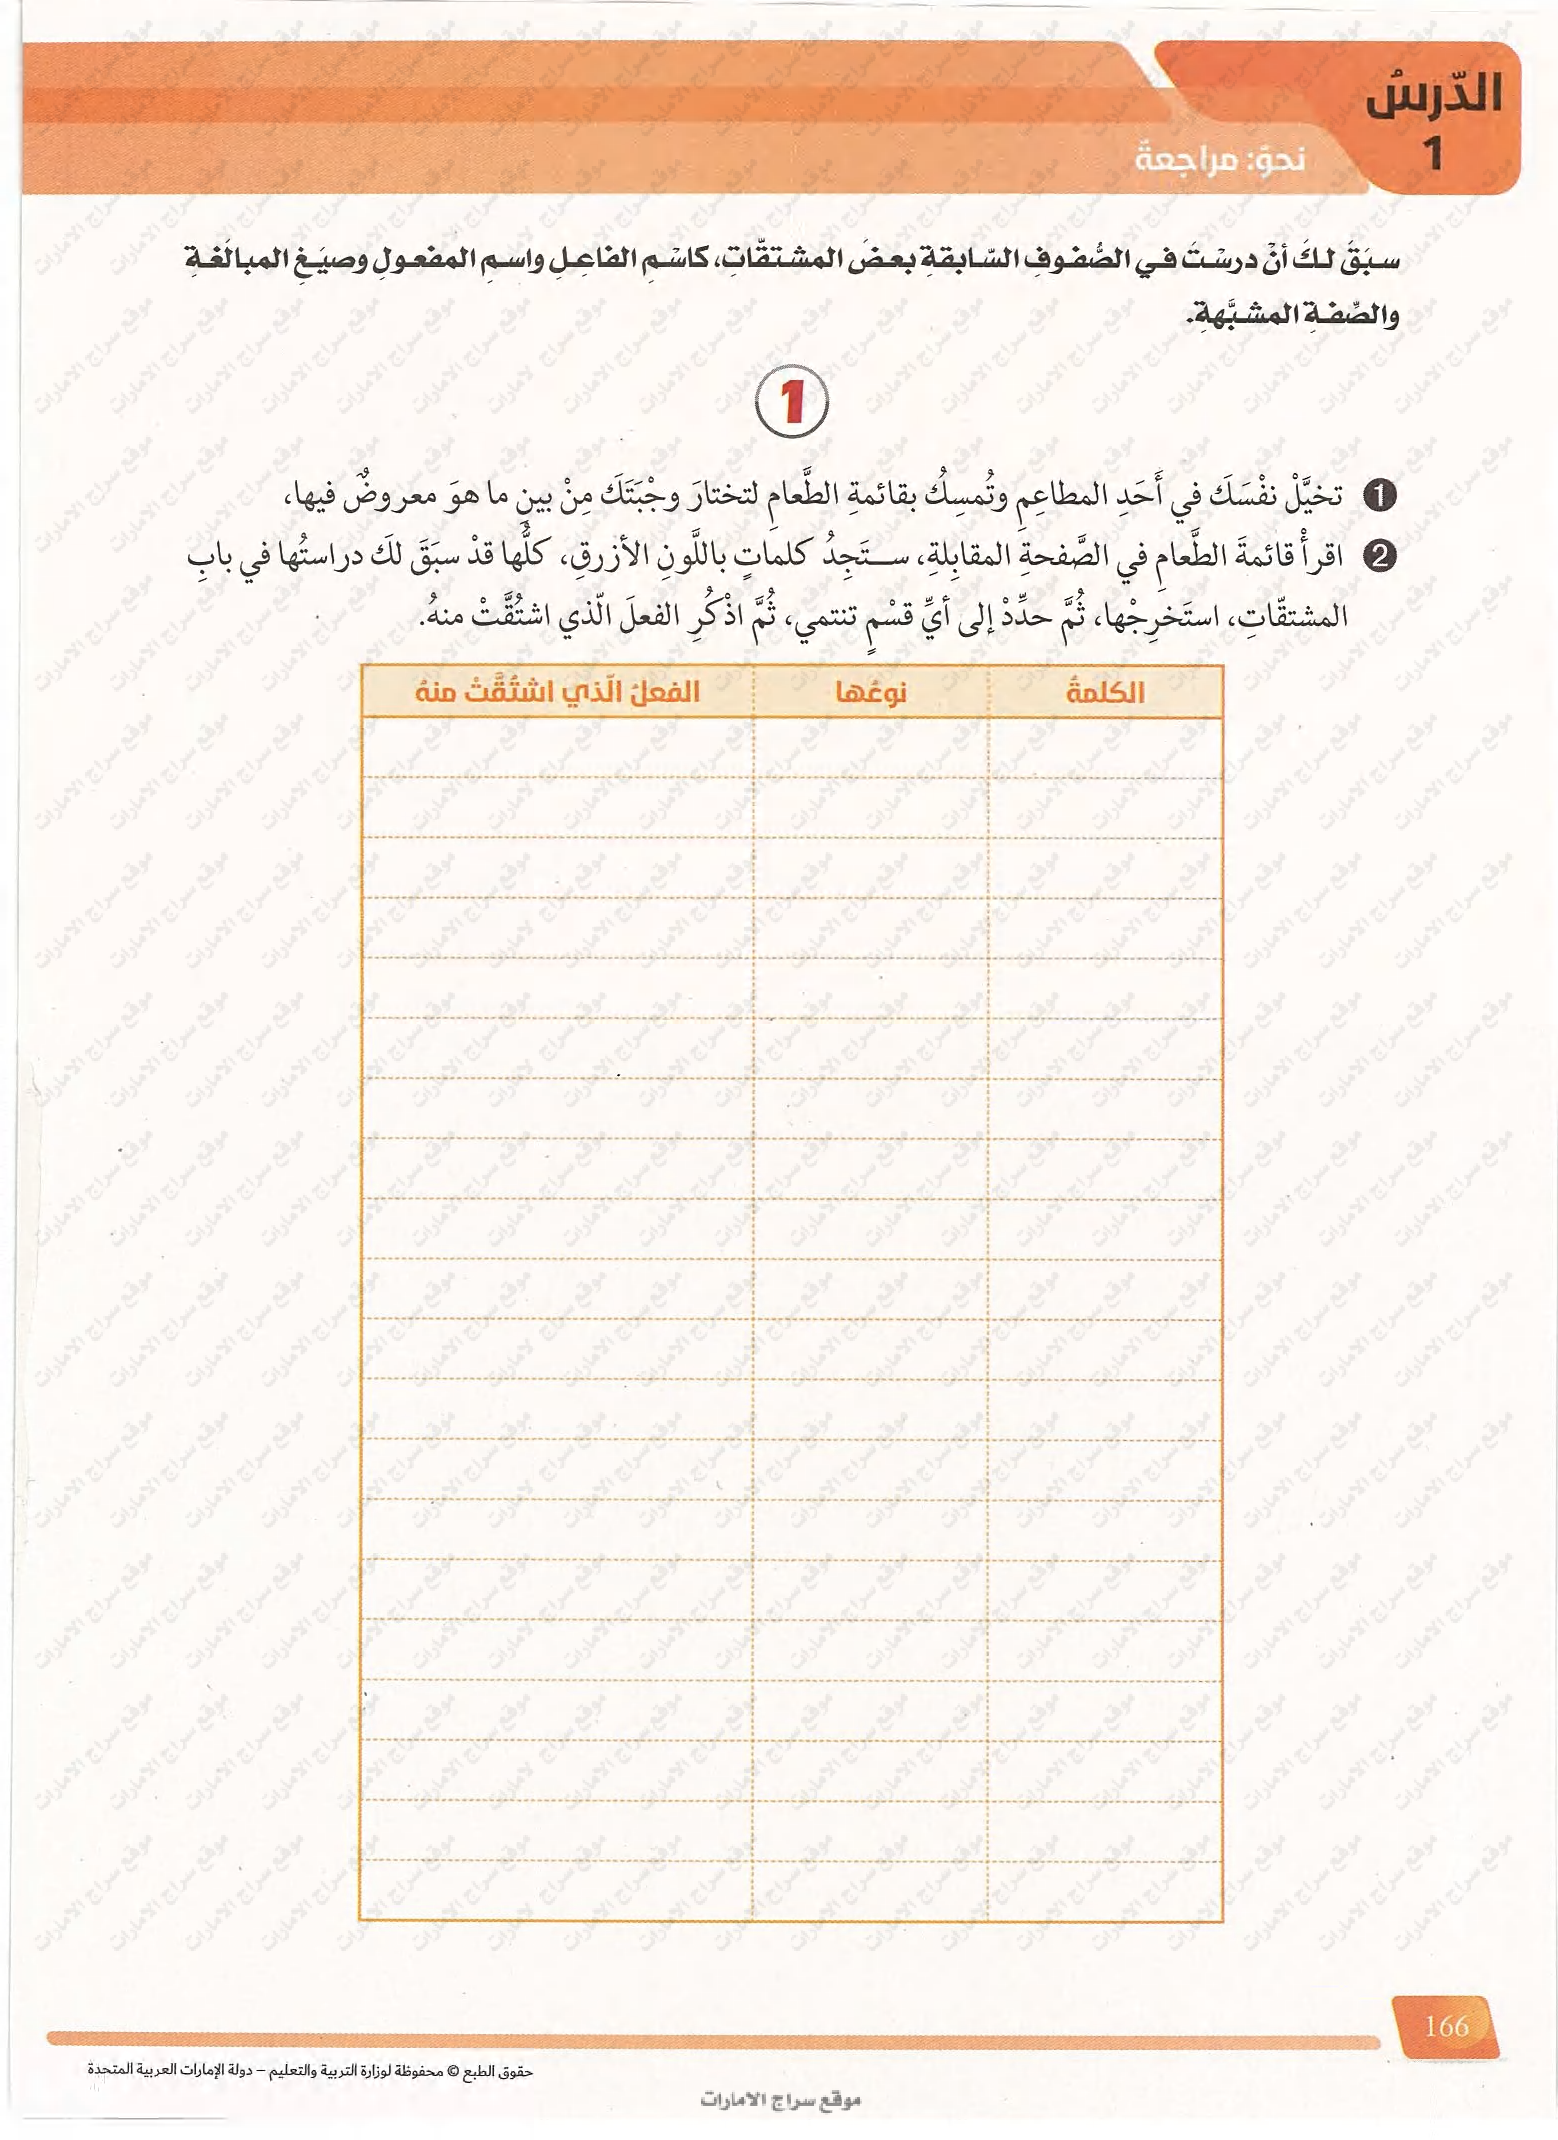 الدّرسُ
1
نحوٌ: مراجعةٌ
سبَقَ لكَ أنْ درسْتَ في الصُّفوفِ السّابقةِ بعضَ المشتقّاتِ، كاسْمِ الفاعِلِ واسمِ المفعولِ وصيَغِ المبالَغةِ
والصِّفةِ المشبَّهةِ.
1
1 تخيَّلْ نفْسَكَ في أَحَدِ المطاعِمِ وتُمسِكُ بقائمةِ الطَّعامِ لتختارَ وجْبَتَكَ مِنْ بينِ ما هوَ معروضٌ فيها،
2 اقرأْ قائمةَ الطَّعامِ في الصَّفحةِ المقابِلةِ، ستَجِدُ كلماتٍ باللَّونِ الأزرقِ، كلُّها قدْ سبَقَ لكَ دراستُها في بابِ
المشتقّاتِ، استَخرِجْها، ثُمَّ حدِّدْ إلى أيِّ قسْمٍ تنتمي، ثُمَّ اذْكُرِ الفعلَ الّذي اشتُقَّتْ منهُ.
الكلمةُ نوعُها الفعلُ الّذي اشتُقَّتْ منهُ
166
حقوق الطبع © محفوظة لوزارة التربية والتعليم – دولة الإمارات العربية المتحدة
موقع سراج الامارات